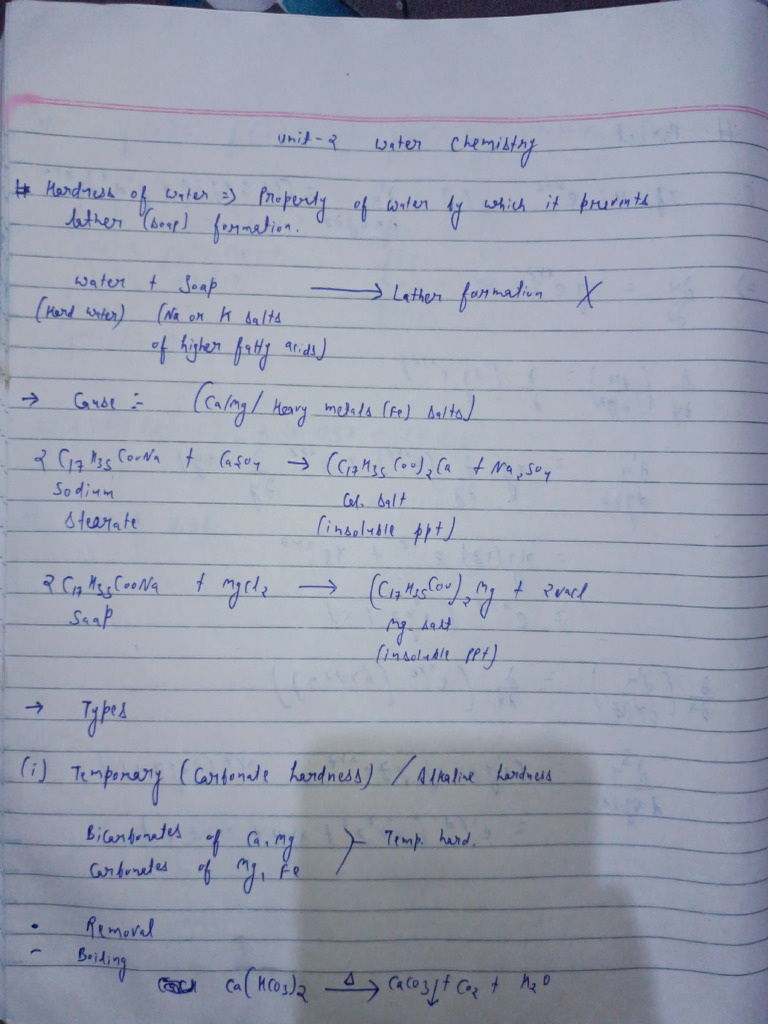 Unit-2 Water Chemistry
Hardness of water => Property of water by which it prevents
lather (soap) formation.
Water + Soap ⟶ Lather formation X
(Hard water) (Na or K salts
of higher fatty acids)
→ Cause :- (Ca/Mg/ Heavy metals (Fe) salts)
2 C17H35COONa + CaSO4 → (C17H35COO)2Ca + Na2SO4
Sodium Cal. salt
Stearate (insoluble ppt)
2 C17H35COONa + MgCl2 ⟶ (C17H35COO)2Mg + 2NaCl
Soap Mg salt
(insoluble ppt)
→ Types
(i) Temporary (Carbonate hardness) / Alkaline hardness
Bicarbonates of Ca, Mg } Temp. hard.
Carbonates of Mg, Fe
• Removal
– Boiling
Ca(HCO3)2 —Δ→ CaCO3↓ + CO2 + H2O